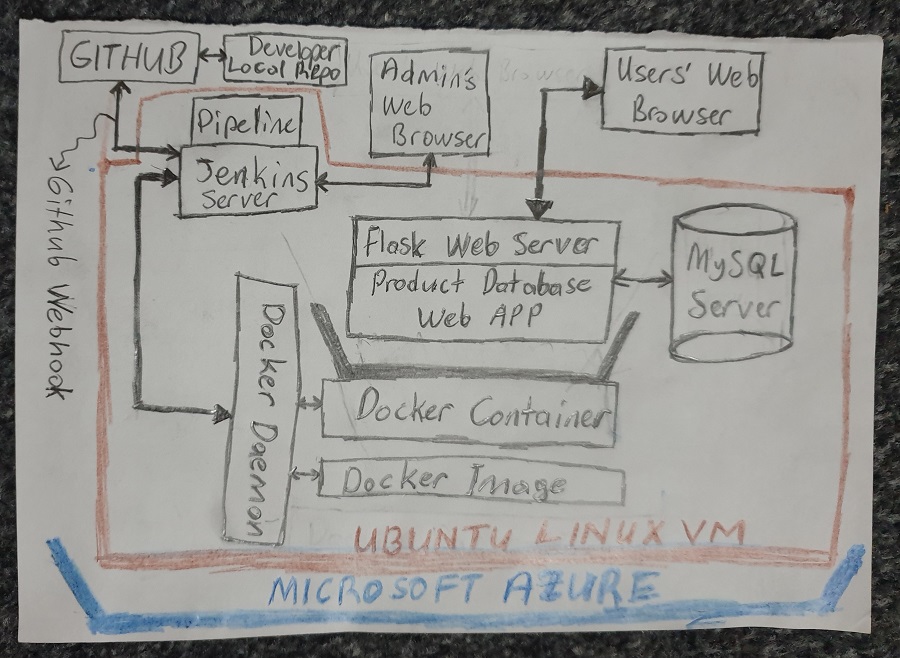 GITHUB
Developer
Local Repo
Admin's
Web
Browser
Users' Web
Browser
Pipeline
Jenkins
Server
Github Webhook
Flask Web Server
Product Database
Web APP
MySQL
Server
Docker Daemon
Docker Container
Docker Image
UBUNTU LINUX VM
MICROSOFT AZURE